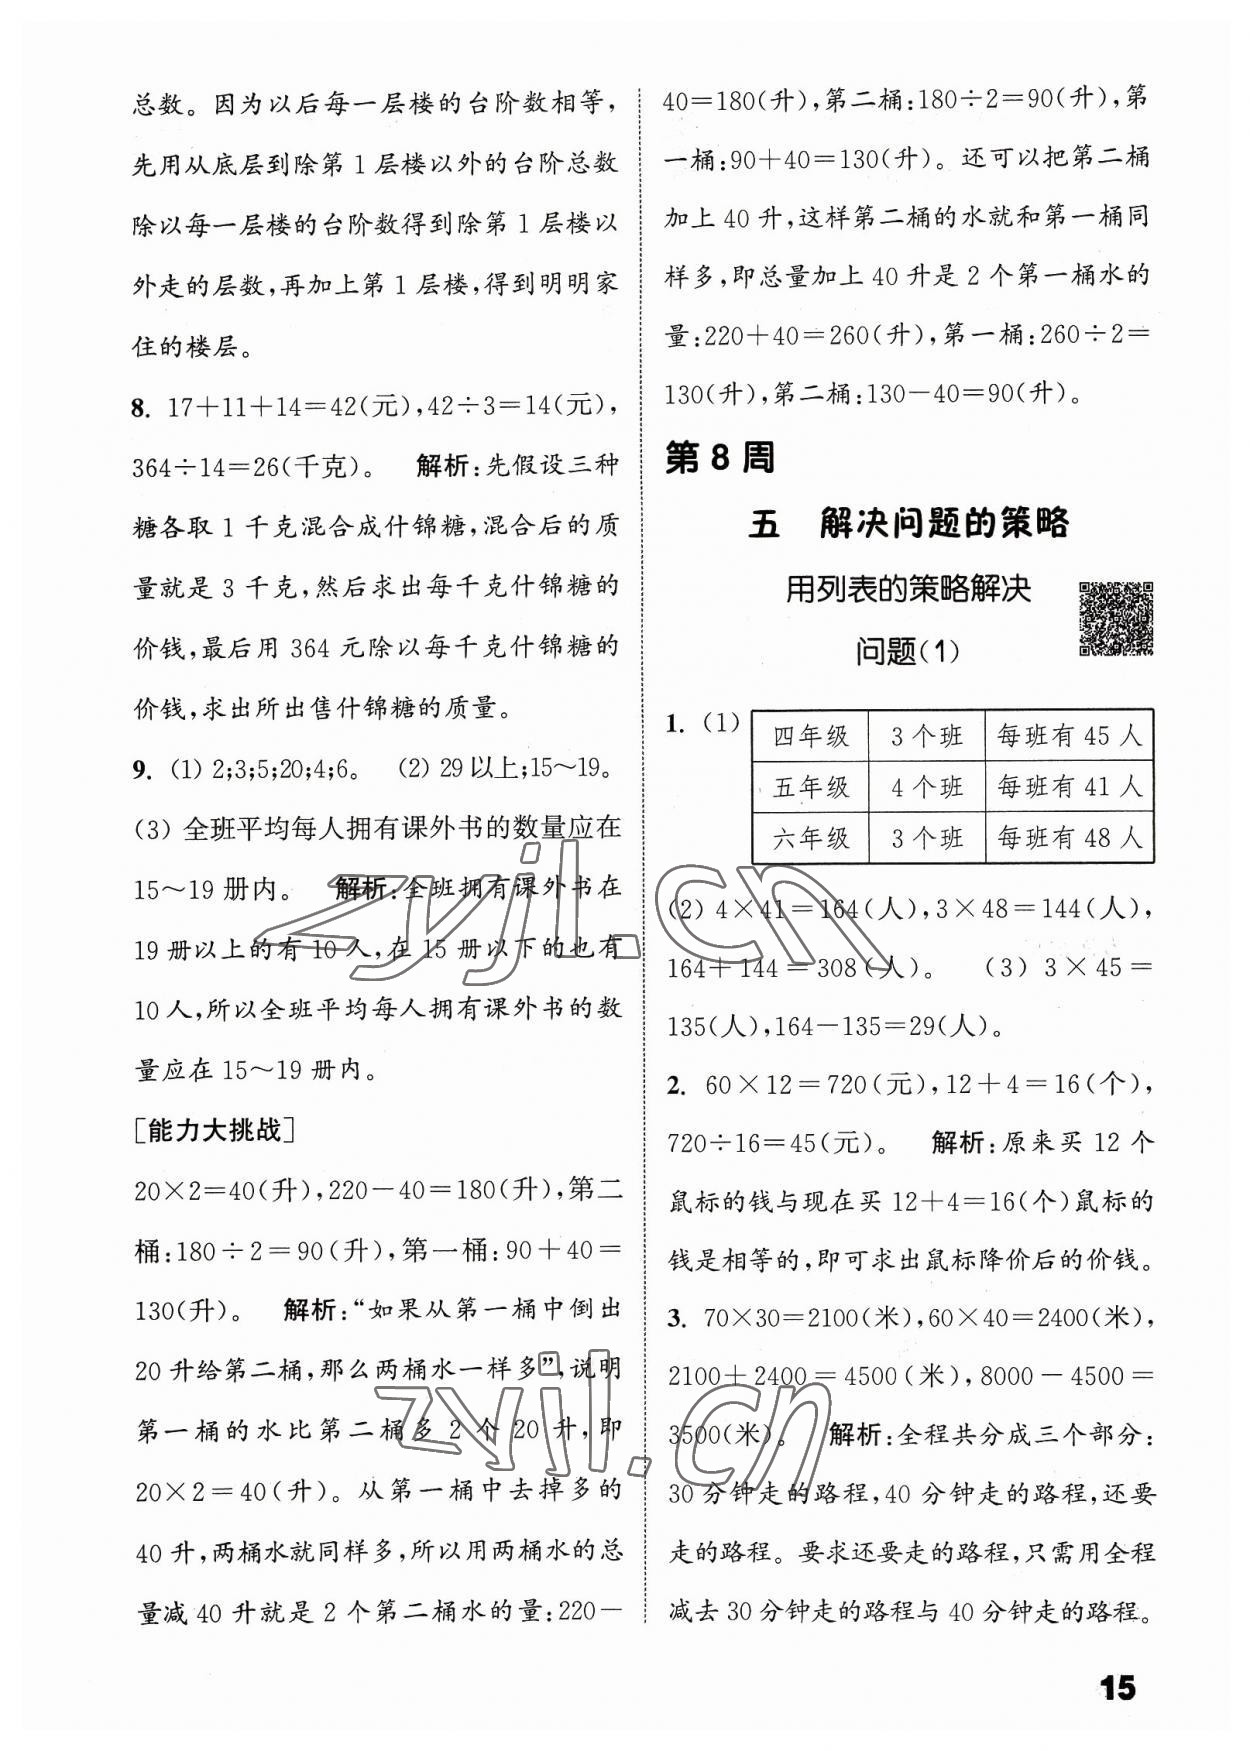 总数。因为以后每一层楼的台阶数相等，
先用从底层到除第 1 层楼以外的台阶总数
除以每一层楼的台阶数得到除第 1 层楼以
外走的层数，再加上第 1 层楼，得到明明家
住的楼层。
8. 17+11+14=42(元)，42÷3=14(元)，
364÷14=26(千克)。 解析：先假设三种
糖各取 1 千克混合成什锦糖，混合后的质
量就是 3 千克，然后求出每千克什锦糖的
价钱，最后用 364 元除以每千克什锦糖的
价钱，求出所出售什锦糖的质量。
9. (1) 2;3;5;20;4;6。 (2) 29 以上;15～19。
(3) 全班平均每人拥有课外书的数量应在
15～19 册内。 解析：全班拥有课外书在
19 册以上的有 10 人，在 15 册以下的也有
10 人，所以全班平均每人拥有课外书的数
量应在 15～19 册内。
[能力大挑战]
20×2=40(升)，220-40=180(升)，第二
桶：180÷2=90(升)，第一桶：90+40=
130(升)。 解析：“如果从第一桶中倒出
20 升给第二桶，那么两桶水一样多”，说明
第一桶的水比第二桶多 2 个 20 升，即
20×2=40(升)。从第一桶中去掉多的
40 升，两桶水就同样多，所以用两桶水的总
量减 40 升就是 2 个第二桶水的量：220-
40=180(升)，第二桶：180÷2=90(升)，第
一桶：90+40=130(升)。还可以把第二桶
加上 40 升，这样第二桶的水就和第一桶同
样多，即总量加上 40 升是 2 个第一桶水的
量：220+40=260(升)，第一桶：260÷2=
130(升)，第二桶：130-40=90(升)。
第 8 周
五 解决问题的策略
用列表的策略解决
问题(1)
1. (1)
四年级 3 个班 每班有 45 人
五年级 4 个班 每班有 41 人
六年级 3 个班 每班有 48 人
(2) 4×41=164(人)，3×48=144(人)，
164+144=308(人)。 (3) 3×45=
135(人)，164-135=29(人)。
2. 60×12=720(元)，12+4=16(个)，
720÷16=45(元)。 解析：原来买 12 个
鼠标的钱与现在买 12+4=16(个)鼠标的
钱是相等的，即可求出鼠标降价后的价钱。
3. 70×30=2100(米)，60×40=2400(米)，
2100+2400=4500(米)，8000-4500=
3500(米)。 解析：全程共分成三个部分：
30 分钟走的路程，40 分钟走的路程，还要
走的路程。要求还要走的路程，只需用全程
减去 30 分钟走的路程与 40 分钟走的路程。
15
zyjl.cn
zyjl.cn